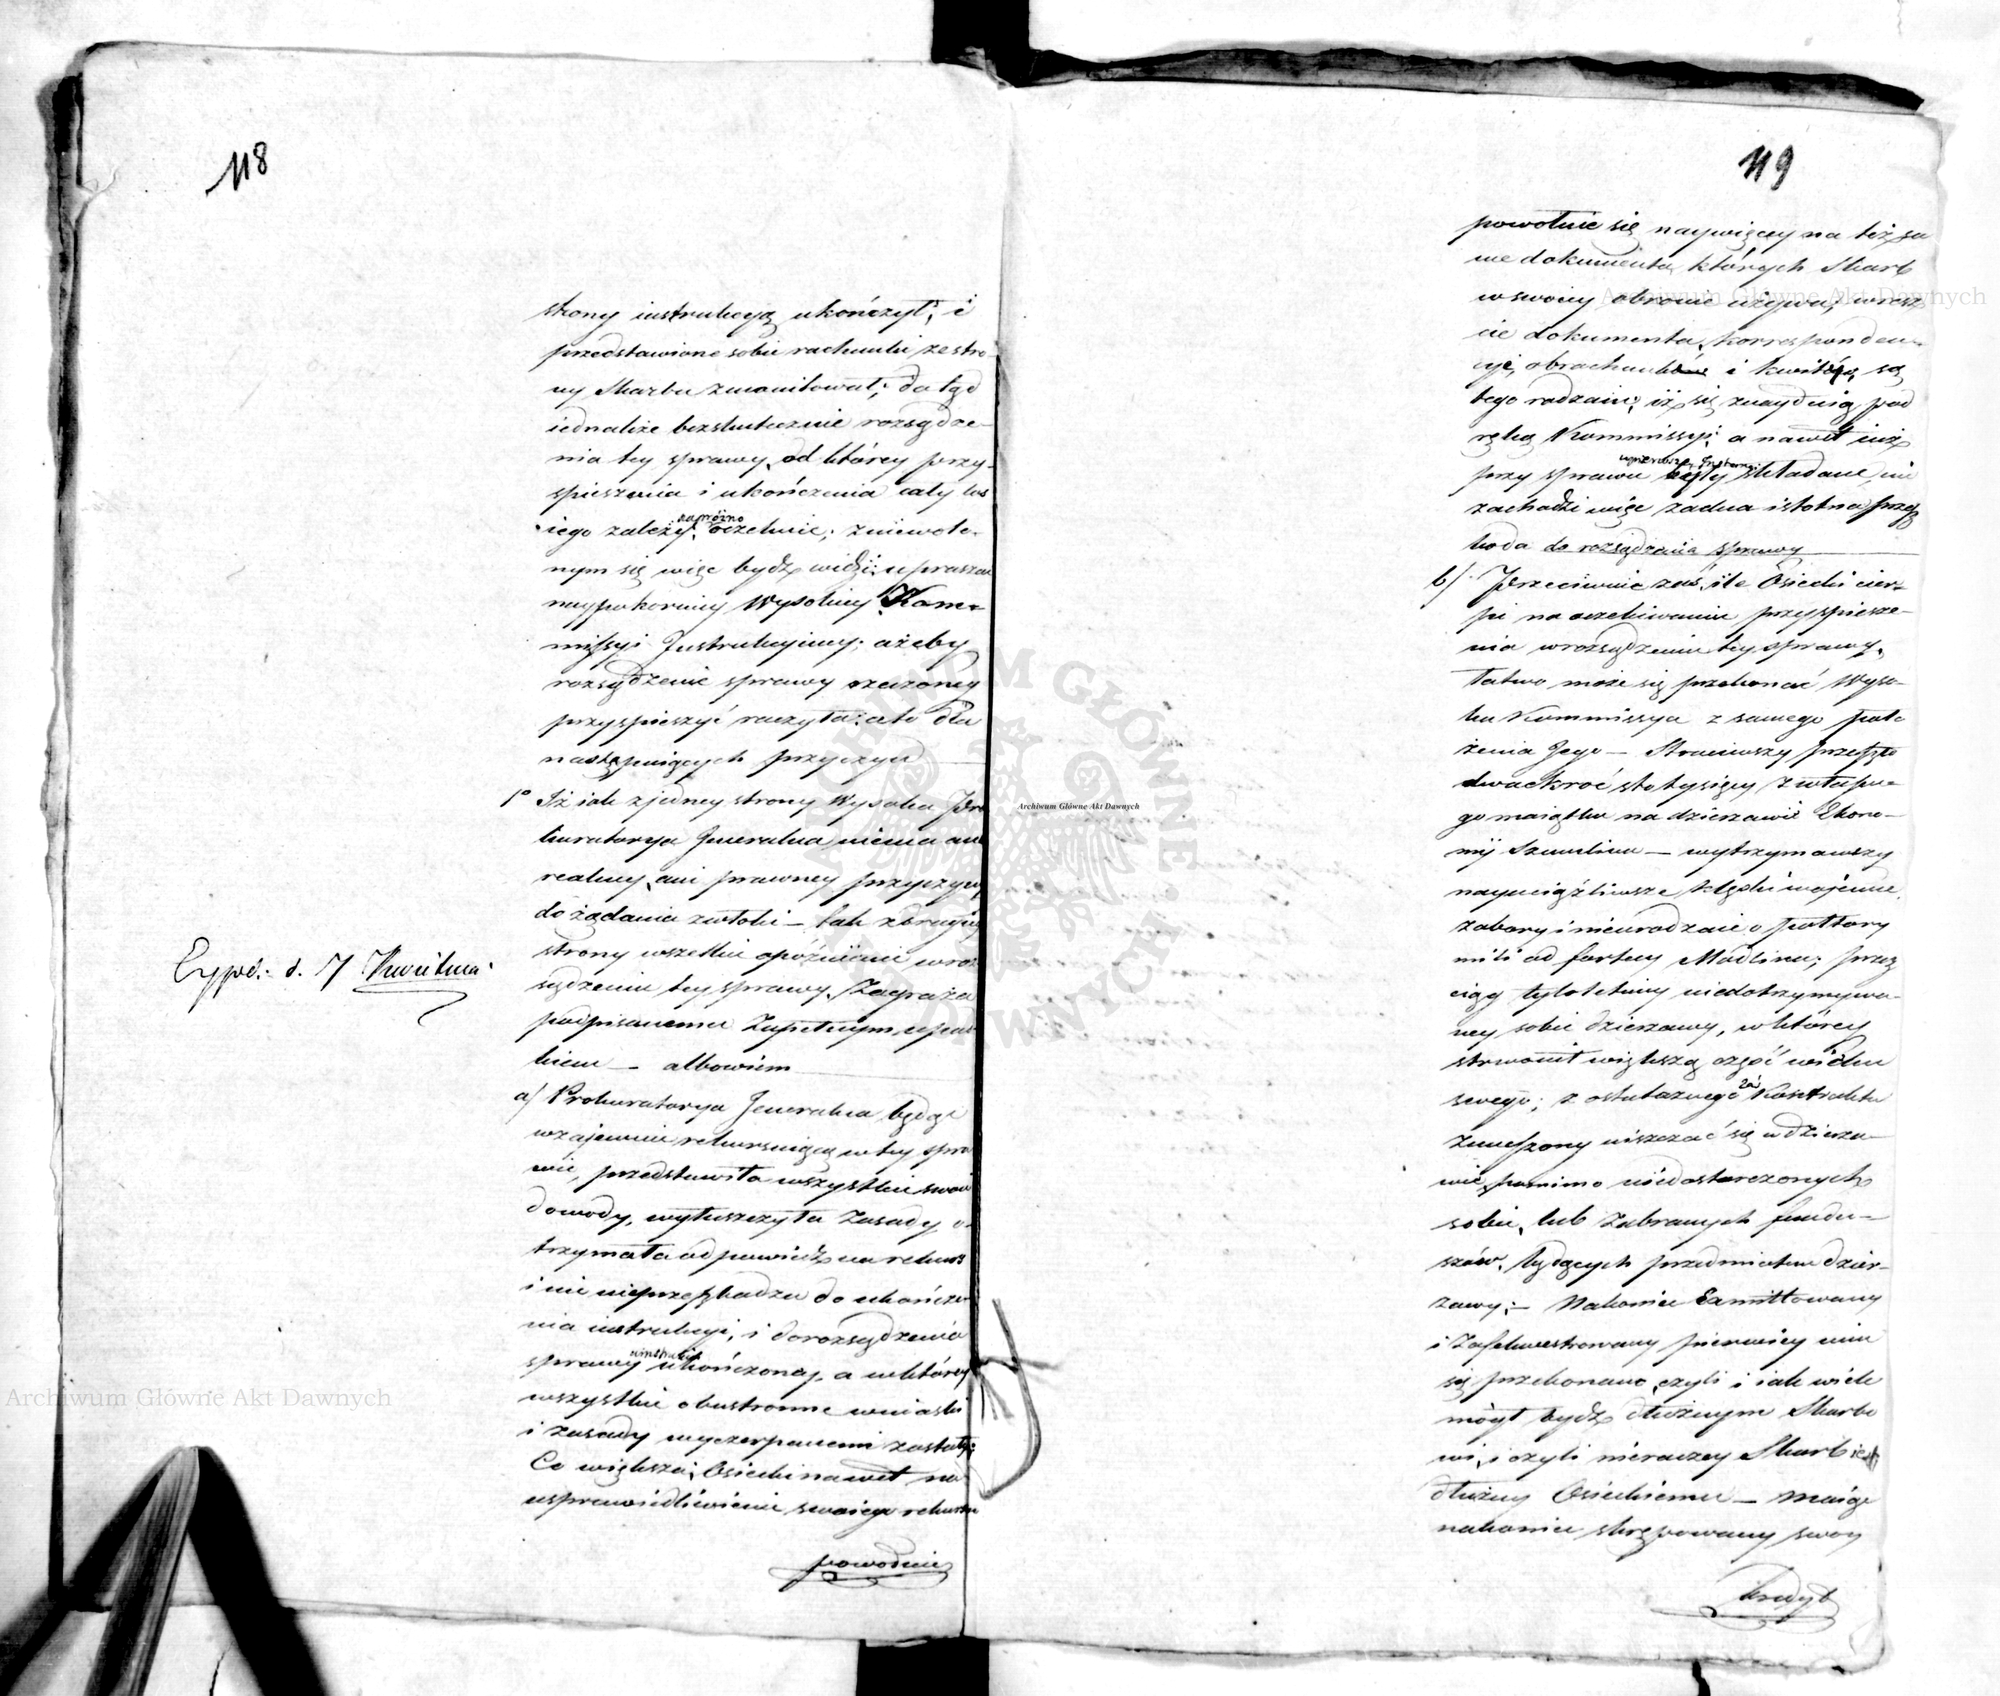 118
skony instrukcyą ukończył; i
przedstawione sobie rachunki ze stro
ny Skarbu zmonitował; do tąd
iednakże bezskutecznie rozsądze-
nia tey sprawy, od którey przy-
spieszenia i ukończenia cały los
iego zależy, napróżno oczekuie; zniewolo-
nym się więc bydź widzi; upraszać
naypokorniey Wysokiey Kom-
missyi Instrukcyiney; ażeby
rozsądzenie sprawy rzeczoney
przyspieszyć raczyła: a to dla
następuiących przyczyn
1o Iż iak z jedney strony Wysoka Pro
kuratorya Generalna niema ani
realney, ani prawney przyczyny
do żądania zwłoki — tak z drugiey
strony wszelkie opóźnienie w roz
sądzeniu tey sprawy, Zagraża
podpisanemu Zupełnym upad-
kiem — albowiem
Exped: d. 17 Kwietnia
a/ Prokuratorya Generalna będąc
wzajemnie rekursuiącą w tey spra
wie, przedstawiła wszystkie swoie
dowody, wyłuszczyła Zasady, o-
trzymała odpowiedź na rekurs
i nic nieprzeszkadza do ukończe
nia instrukcyi, i do rozsądzenia
sprawy ukończoney, a w którey
wszystkie obustronne wnioski
i zasady wyczerpanemi zostały;
Co większa; Osiecki nawet na
usprawiedliwienie swoiego rekursu
powołuie
119
powołuie się naywięcey na też sa
me dokumenta, których Skarb
w swoiey obronie używa; wresz
cie dokumenta, korresponden-
cye, obrachunków i kwitów, są
tego rodzaiu; iż się znayduią pod
ręką Kommissyi; a nawet iuż
przy sprawie były składane, nie
zachodzi więc żadna istotna przesz
koda do rozsądzenia sprawy
b/ Przeciwnie zaś, ile Osiecki cier-
pi na oczekiwaniu przyspiesze-
nia w rozsądzeniu tey sprawy,
łatwo może się przekonać Wyso-
ka Kommissya z samego poło
żenia Jego — Straciwszy przeszło
dwackroć stotysięcy z własne-
go maiątku na dzierzawie Ekono-
mij Szczulina — wytrzymawszy
nayuciążliwsze klęski wojenne,
zabory i nieurodzaie o półtory
mili od fortecy Modlina; przez
ciąg tyloletney niedotrzymywa-
ney sobie dzierzawy, w którey
strwonił większą część wieku
swego; z ostatecznego zaś Kontraktu
zmuszony niszczać się w dzierza-
wie, pomimo niedostarczonych
sobie, lub Zabranych fundu-
szów, będących przedmiotem dzier-
zawy; — Nakoniec Exmittowany
i Zasekwestrowany pierwiey nim
się przekonano, czyli i iak wiele
mógł bydź dłużnym Skarbo
wi, i czyli nieraczey Skarb iest
dłużny Osieckiemu — Maiąc
nakoniec skrępowany swoy
kredyt